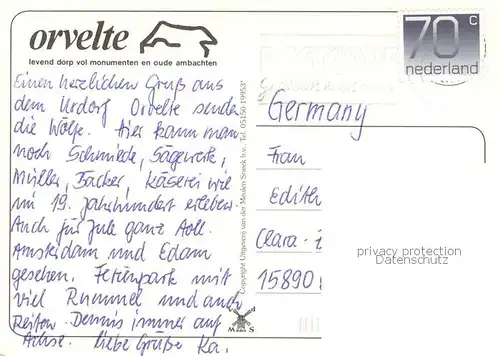 orvelte
levend dorp vol monumenten en oude ambachten
Einen herzlichen Gruß aus
dem Urdorf Orvelte senden
die Wölfe. Hier kann man
noch Schmiede, Sägewerk,
Müller, Bäcker, Käserei wie
im 19. Jahrhundert erleben.
Auch für Jule ganz toll.
Amsterdam und Edam
gesehen. Ferienpark mit
viel Rummel und auch
Reiten. Dennis immer auf
Achse. Liebe Grüße Ka.
Copyright Uitgeverij van der Meulen Sneek b.v., Tel. 05150-19953*
M S
70c
nederland
Germany
Frau
Edith
Clara-
15890
privacy protection
Datenschutz